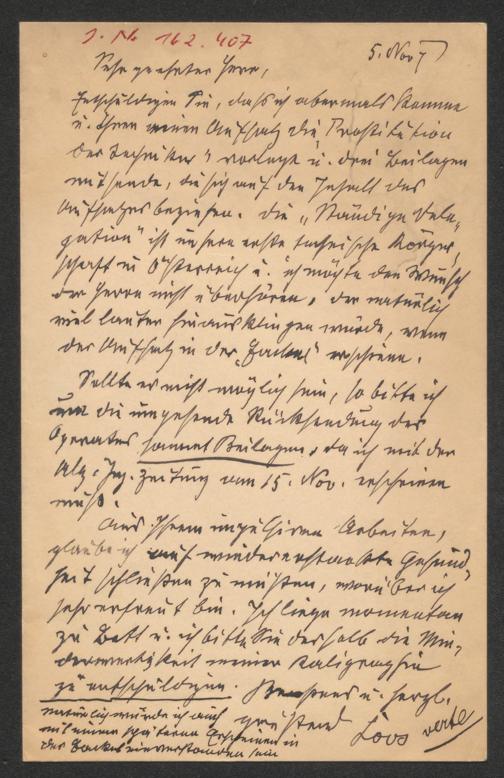 J. Nr. 162.407
5. Nov 7
Sehr geehrter Herr,
Entschuldigen Sie, dass ich abermals komme
u. Ihnen meinen Aufsatz die Prostitution
des Technikers" vorlege u. drei Beilagen
mitsende, die sich auf den Inhalt des
Aufsatzes beziehen. Die „Ständige Dele-
gation" ist unsere erste technische Körper-
schaft in Österreich u. ich möchte den Wunsch
der Herren nicht überhören, der natürlich
viel lauter hinausklingen würde, wenn
der Aufsatz in der „Fackel" erschiene.
Sollte es nicht möglich sein, so bitte ich
um die umgehende Rücksendung des
Operates sammt Beilagen, da ich mit der
Alg. Ing. Zeitung am 15. Nov. erscheinen
muß.
Aus Ihren impulsiven Arbeiten,
glaube ich auf wiedererstarkte Gesund-
heit schließen zu müssen, worüber ich
sehr erfreut bin. Ich liege momentan
zu Bett u. ich bitte Sie deshalb die Min-
derwertigkeit meiner Kaligraphie
zu entschuldigen. Bestens u. herzl.
grüßend Loos
verte
Natürlich würde ich auch
mit einem späteren Erscheinen in
der Fackel einverstanden sein